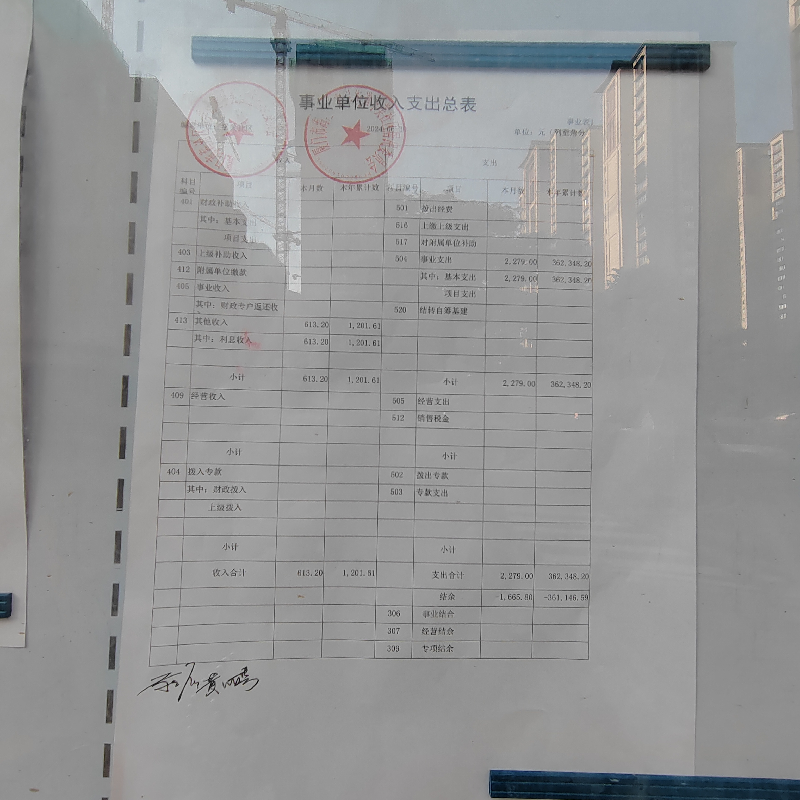 事业单位收入支出总表
事业表1
2024
单位：元（列至角分）
收入 支出
科目编号 项目 本月数 本年累计数 科目编号 项目 本月数 本年累计数
401 财政补助收入 501 拨出经费
其中：基本支 516 上缴上级支出
项目支 517 对附属单位补助
403 上级补助收入 504 事业支出 2,279.00 362,348.20
412 附属单位缴款 其中：基本支出 2,279.00 362,348.20
405 事业收入 项目支出
其中：财政专户返还收 520 结转自筹基建
413 其他收入 613.20 1,201.61
其中：利息收入 613.20 1,201.61
小计 613.20 1,201.61 小计 2,279.00 362,348.20
409 经营收入 505 经营支出
512 销售税金
小计 小计
404 拨入专款 502 拨出专款
其中：财政拨入 503 专款支出
上级拨入
小计 小计
收入合计 613.20 1,201.61 支出合计 2,279.00 362,348.20
结余 -1,665.80 -361,146.59
306 事业结余
307 经营结余
309 专项结余